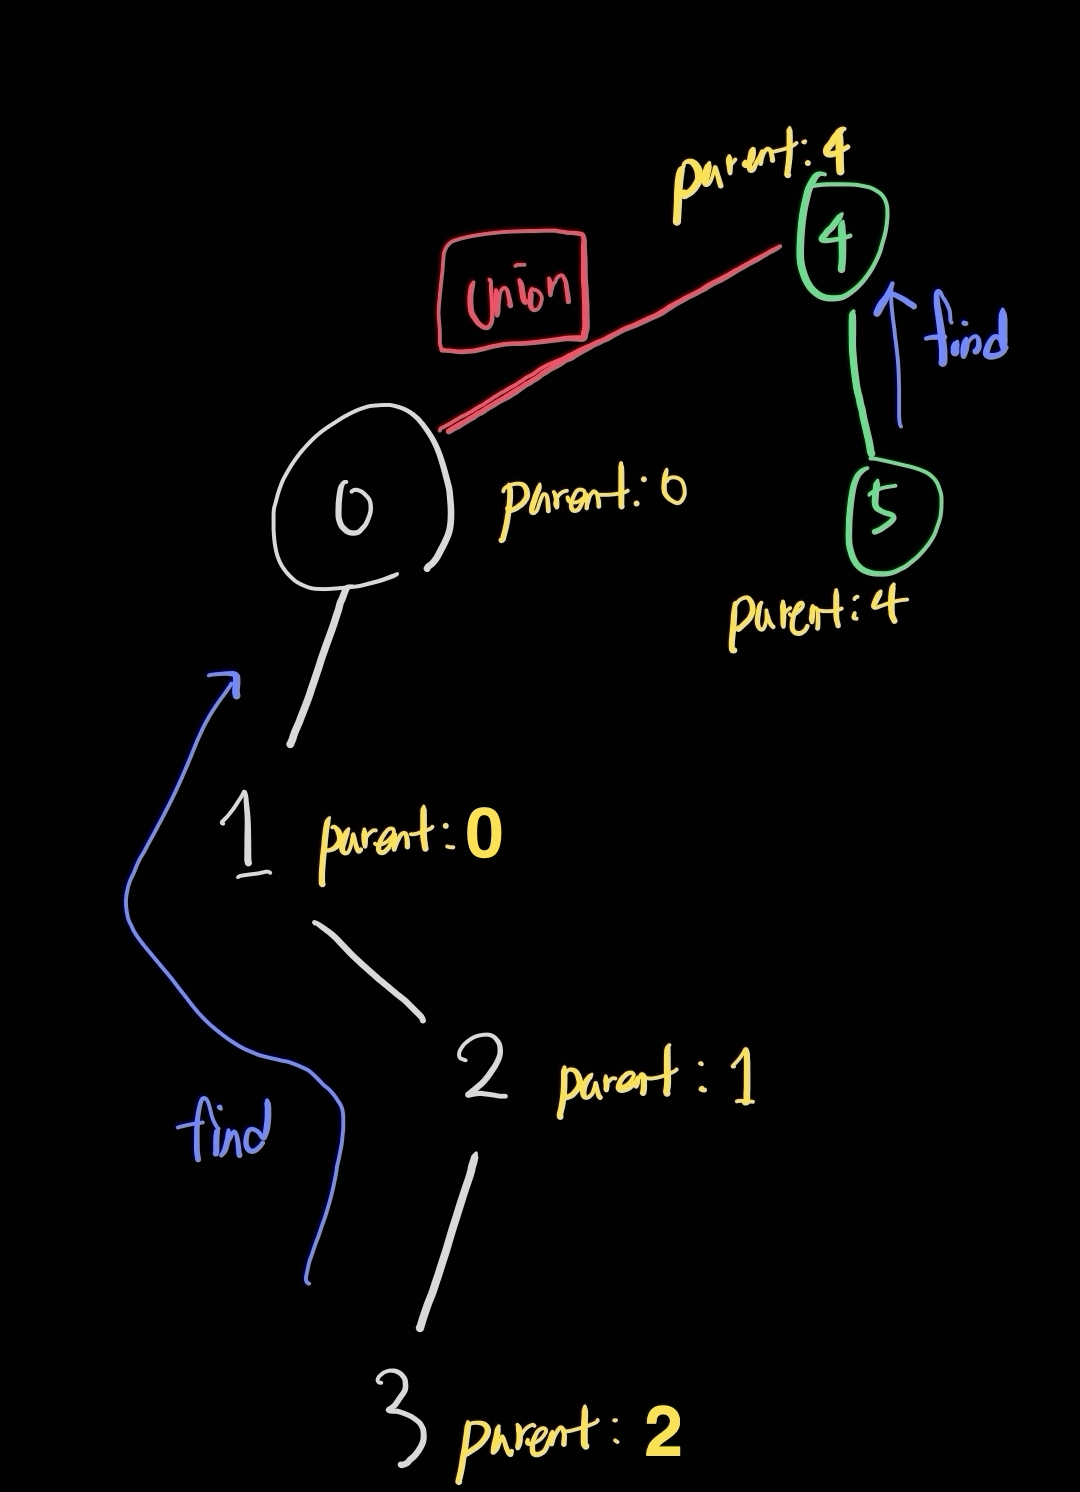 parent: 4
4
union
find
0
parent: 0
5
parent: 4
1
parent: 0
2
parent: 1
find
3
parent: 2